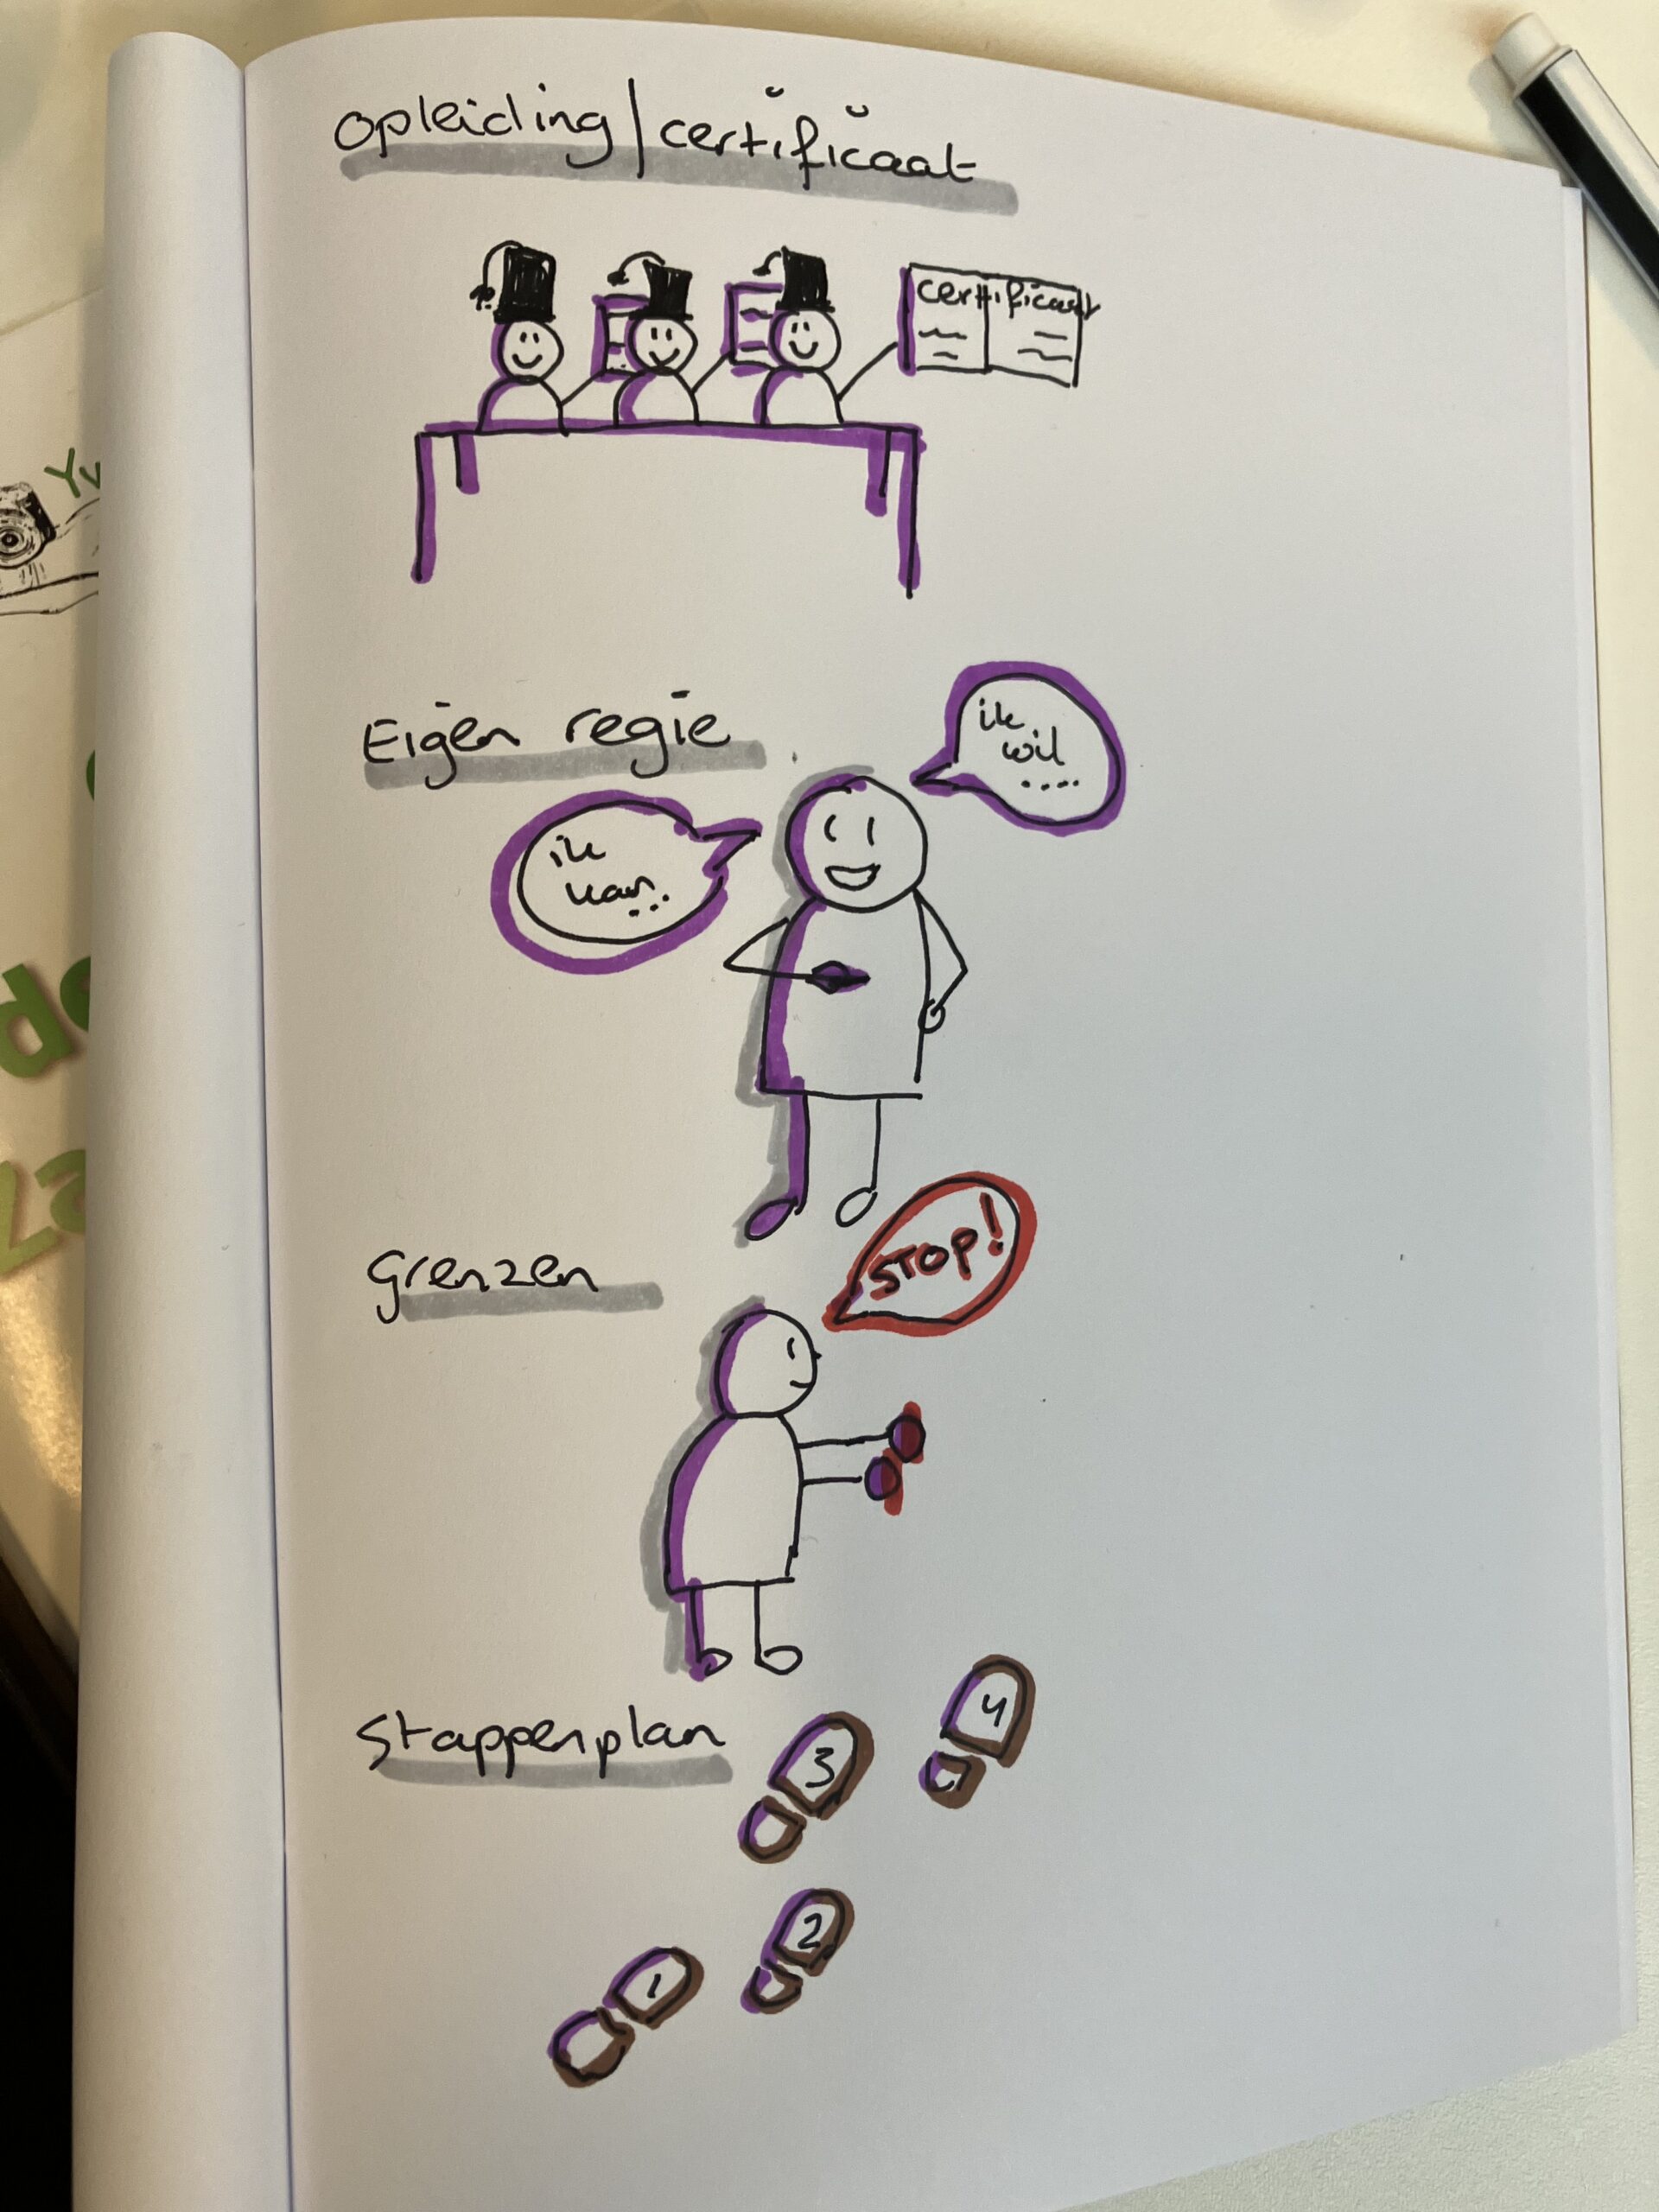 opleiding/certificaat
certificaat
Eigen regie
ik
wil
....
ik
kan...
grenzen
STOP!
Stappenplan
4
3
2
1
Yv
de
za